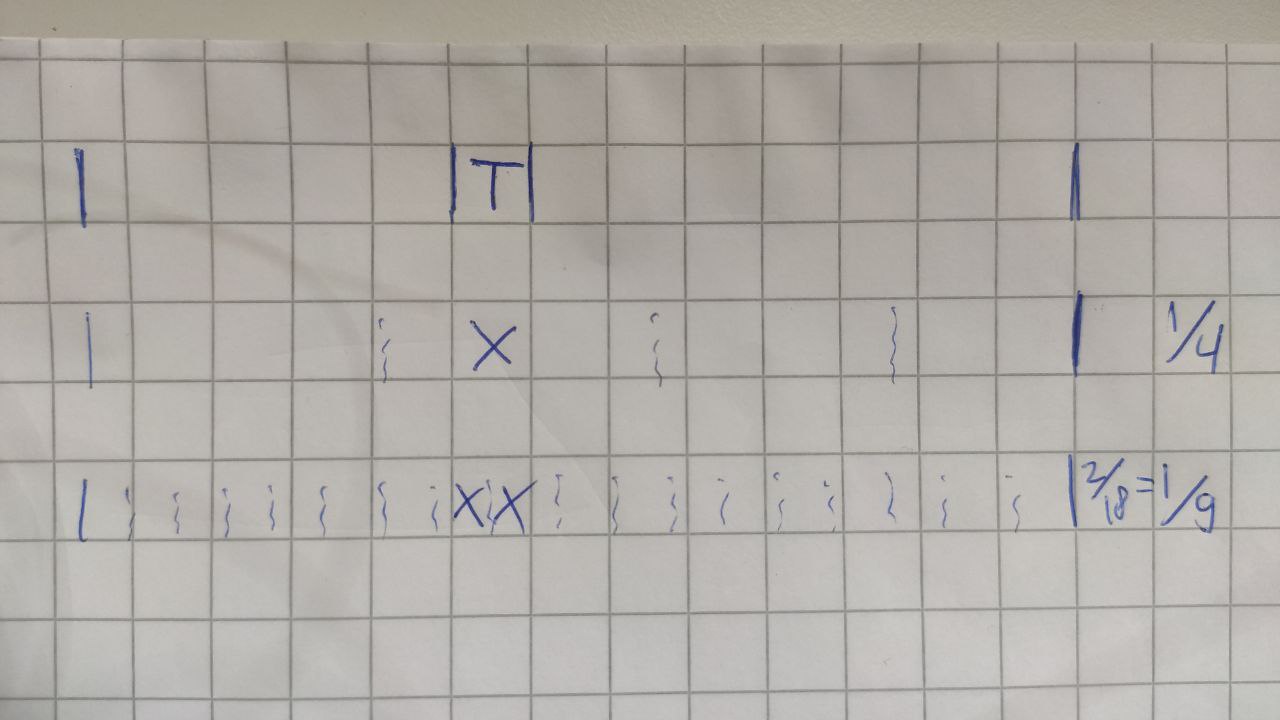 | |T| |
| X | 1/4
| XX | 2/18=1/9